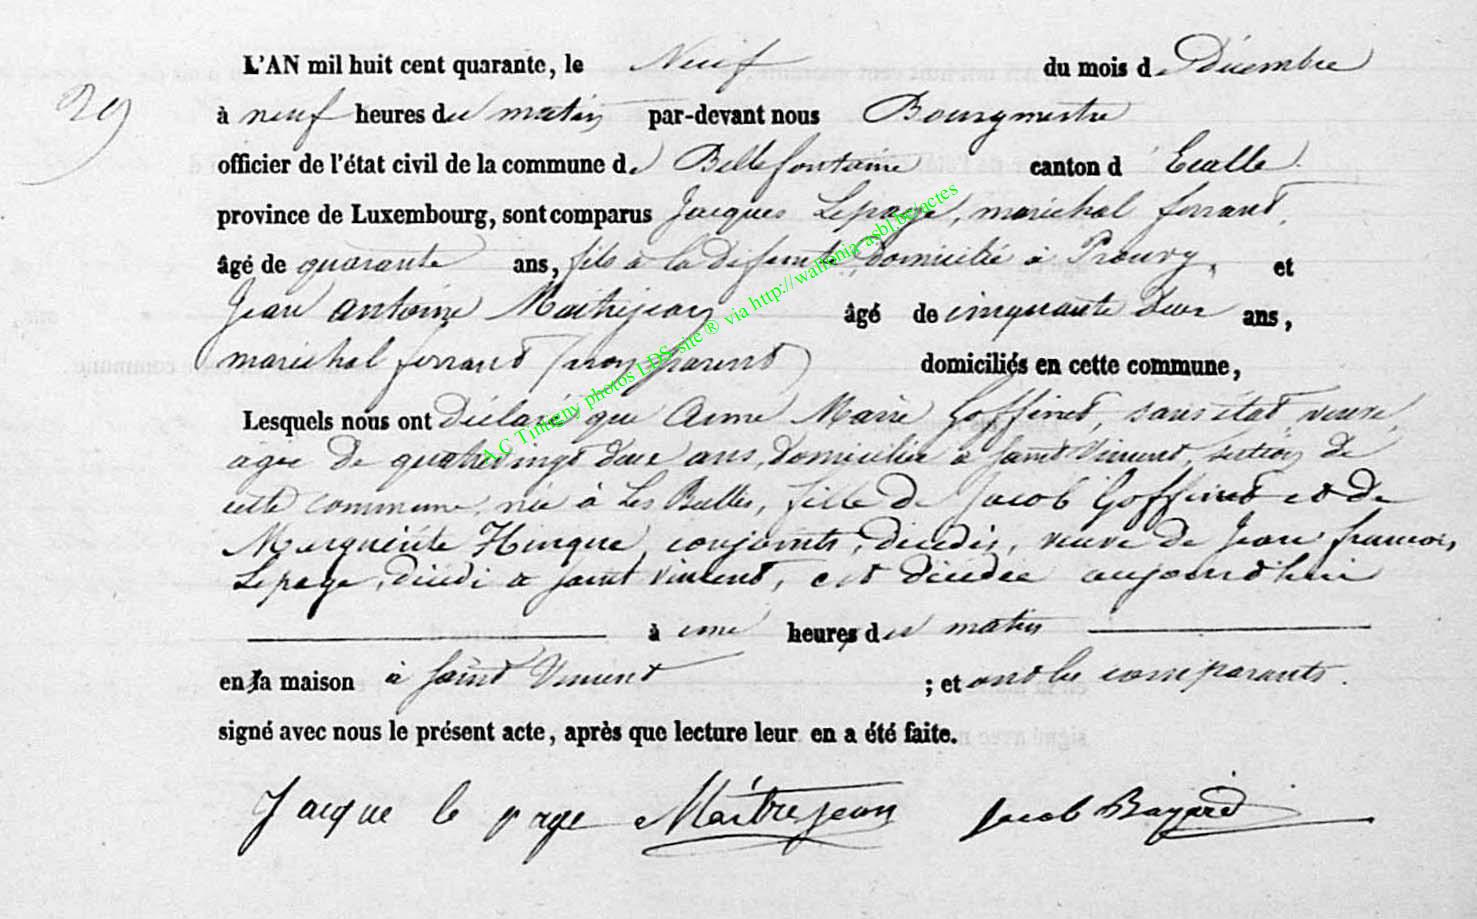 L'AN mil huit cent quarante, le Neuf du mois de Décembre
29
à neuf heures du matin par-devant nous Bourgmestre
officier de l'état civil de la commune de Bellefontaine canton d'Etalle
province de Luxembourg, sont comparus Jacques Lepage, maréchal ferrant,
âgé de quarante ans, fils à la défunte, domicilié à Prouvy, et
Jean Antoine Maitrejean âgé de cinquante deux ans,
maréchal ferrant (non parent) domiciliés en cette commune,
Lesquels nous ont Déclaré que Anne Marie Goffinet, sans état, veuve,
agée de quatrevingt deux ans, domiciliée à Saint Vincent, section de
cette commune, née à Les Bulles, fille de Jacob Goffinet et de
Marguerite Hinque, conjoints, décédés, veuve de Jean françois,
Lepage, décédé à Saint Vincent, est décédée aujourd'hui
à une heures du matin
en sa maison à Saint Vincent ; et ont les comparants
signé avec nous le présent acte, après que lecture leur en a été faite.
Jacque le page Maitrejean Jacob Bayard
A.C Tintigny photos LDS site ® via http://wallonia-asbl.be/actes